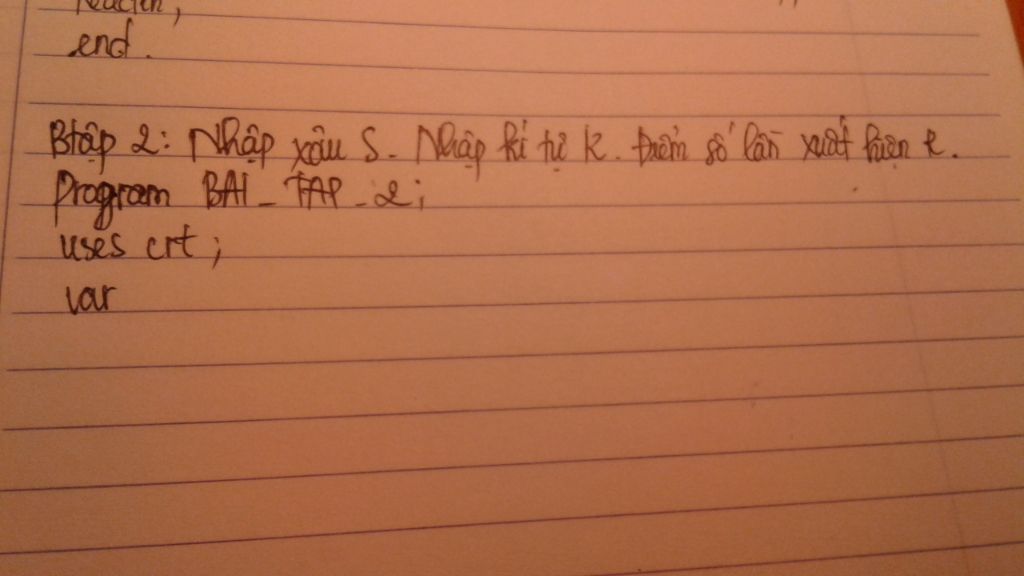 readln;
end.
Btập 2: Nhập xâu S. Nhập kí tự k. Đếm số lần xuất hiện k.
Program BAI_TAP_2;
uses crt;
var